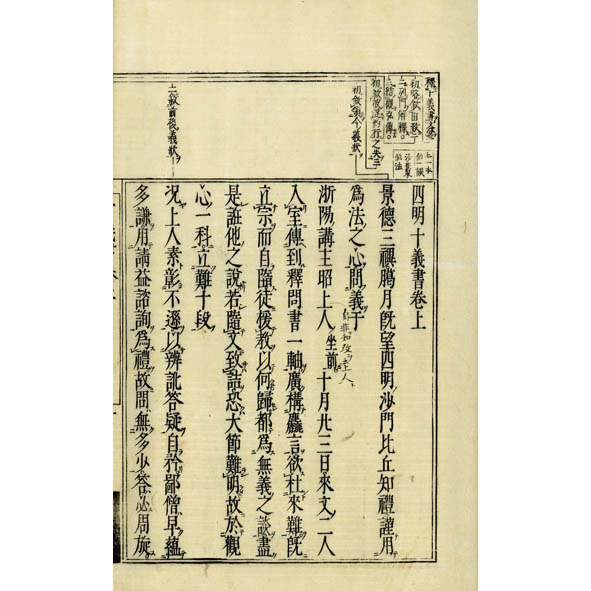 四明十義書卷上
景德三禩臈月旣望四明沙門比丘知禮謹用
爲法之心問義于
浙陽講主昭上人坐前十月廿三日來文二人
入室傳到釋問書一軸廣構麤言欲杜來難旣
立宗而自墮徒援教以何歸都爲無義之談盡
是誑他之說若隨文致詰恐大節難明故於觀
心一科立難十段
況上人素彰不遜以辨訛答疑自矜鄙僧早蘊
多謙用請益諮詢爲禮故問無多少答必周旋
二敘前後義狀